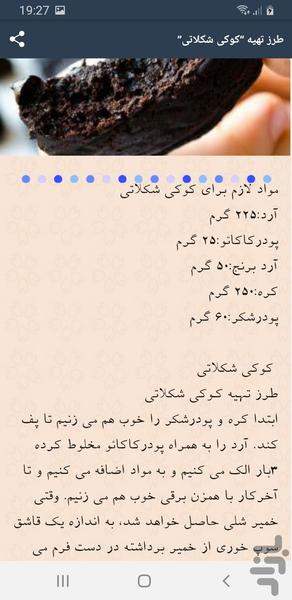 19:27
طرز تهیه “کوکی شکلاتی”
مواد لازم برای کوکی شکلاتی
آرد:۲۲۵ گرم
پودرکاکائو:۲۵ گرم
آرد برنج:۵۰ گرم
کره:۲۵۰ گرم
پودرشکر:۶۰ گرم
کوکی شکلاتی
طرز تهیه کوکی شکلاتی
ابتدا کره و پودرشکر را خوب هم می زنیم تا پف
کند. آرد را به همراه پودرکاکائو مخلوط کرده
۳بار الک می کنیم و به مواد اضافه می کنیم و تا
آخرکار با همزن برقی خوب هم می زنیم. وقتی
خمیر شلی حاصل خواهد شد، به اندازه یک قاشق
سوپ خوری از خمیر برداشته در دست فرم می